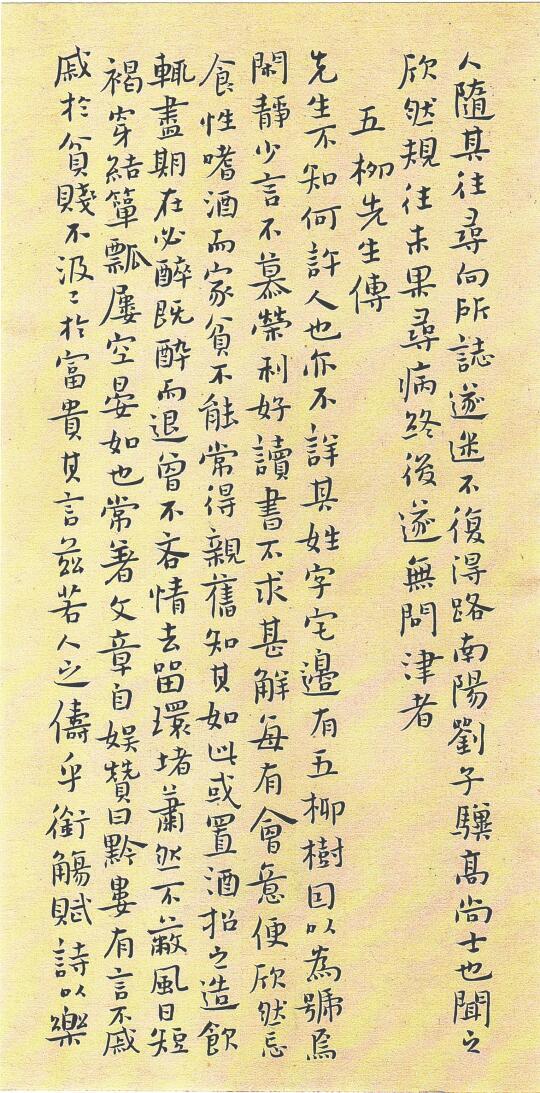 人隨其往尋向所誌遂迷不復得路南陽劉子驥高尚士也聞之
欣然規往未果尋病終後遂無問津者
五柳先生傳
先生不知何許人也亦不詳其姓字宅邊有五柳樹因以為號焉
閑靜少言不慕榮利好讀書不求甚解每有會意便欣然忘
食性嗜酒而家貧不能常得親舊知其如此或置酒招之造飲
輒盡期在必醉既醉而退曾不吝情去留環堵蕭然不蔽風日短
褐穿結簞瓢屢空晏如也常著文章自娛贊曰黔婁有言不戚
戚於貧賤不汲〻於富貴其言茲若人之儔乎銜觴賦詩以樂